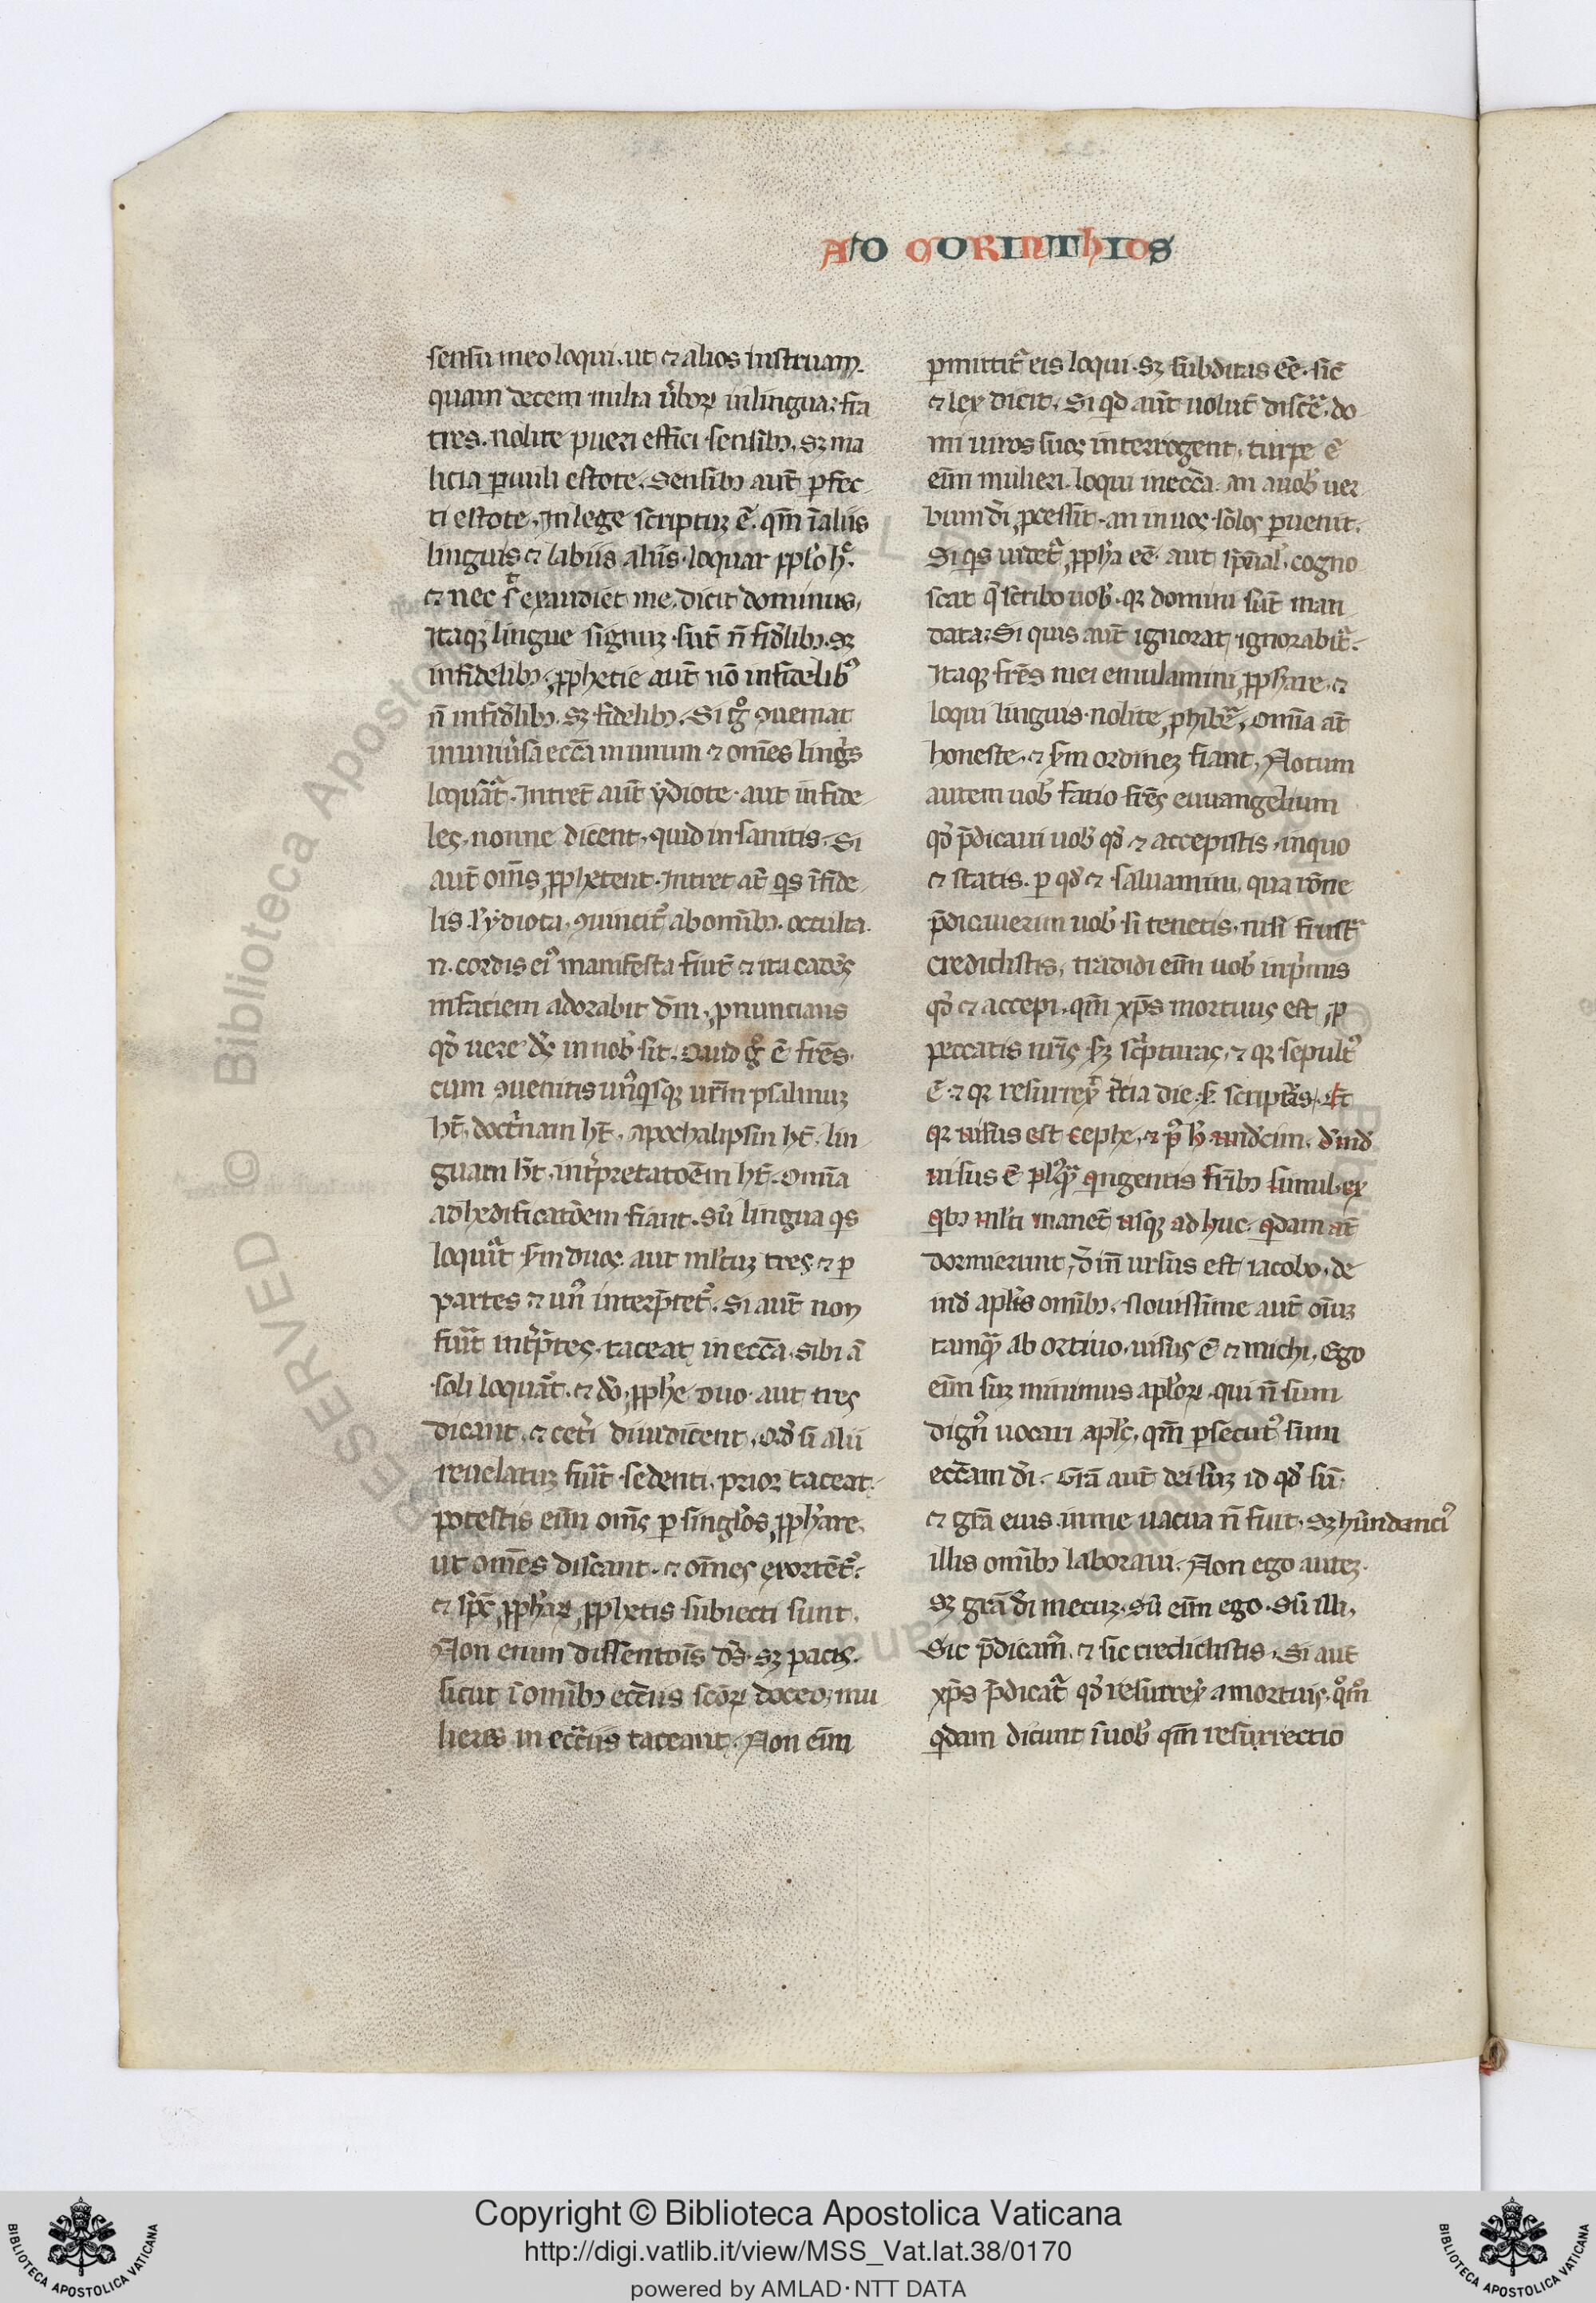 AD CORINThIOS
sensu meo loqui. ut ⁊ alios instruam.
quam decem milia ũboꝝ in lingua: fra
tres. nolite pueri effici sensibꝫ. sꝫ ma
licia ꝑuuli estote. Sensibꝫ aut̃ ꝑfec
ti estote. In lege scriptuꝫ ẽ. qm̃ ĩ aliis
linguis ⁊ labiis aliis loquar ꝓplo h̃.
⁊ nec sic̃ exaudiet me. dicit dominus.
Itaqꝫ lingue signuꝫ sũt ñ fid̃libꝫ. sꝫ
infidelibꝫ. ꝓphetie aut̃ nõ infidelibꝰ
ñ infid̃libꝫ. sꝫ fidelibꝫ. Si g̊ ꝯueniat
in uniũsa ecc̃a in unum ⁊ oms̃ linguis
loquãt̃. Intret aut̃ ydiote. aut infide
les. nonne dicent. quid insanitis. Si
aut̃ oms̃ ꝓphetent. Intret at̃ qͥs ĩfide
lis. ł ydiota. ꝯuincit̃ ab omĩbꝫ. occulta
n. cordis eiꝰ manifesta fiũt ⁊ ita cadẽs
in faciem adorabit dm̃. ꝓnuncians
qd̃ uere ds̃ in uob̃ sit. Quid g̊ ẽ frẽs.
cum ꝯuenitis unꝰqͥsqꝫ urm̃ psalmuꝫ
ht̃. doctͥnam ht̃. apochalipsin ht̃. lin
guam ht̃. intp̃retatoẽm ht̃. omĩa
ad hedificatõem fiant. Siũ lingua qͥs
loquit̃ sm̃ duos. aut mltuꝫ tres. ⁊ ꝑ
partes ⁊ unꝰ interp̃tet̃. Si aut̃ non
fuĩt int̃p̃tes. taceat in ecc̃a. sibi ã
soli loquat̃. ⁊ dõ. ꝓphe duo. aut tres
dicant. ⁊ cet̃i diiudicent. Qd̃ si alii
reuelatuꝫ fuĩt sedenti. prior taceat.
potestis em̃ oms̃ ꝑ singłos ꝓpħare.
ut oms̃ discant. ⁊ oms̃ exortẽt̃.
⁊ sp̃c ꝓpħaꝝ ꝓphetis subiecti sunt.
Non enim dissentoĩs ds̃. sꝫ pacis.
sicut ĩ omĩbꝫ ecc̃iis sc̃oꝝ doceo. mu
lieres in ecc̃iis taceant. Non eĩm
ꝑmittit̃ eis loqui. Sꝫ subditas eẽ. sic̃
⁊ lex dicit. Si qͥd aut̃ uolũt disc̃e. do
mi uiros suos interrogent. turpe ẽ
em̃ mulieri. loqui in ecc̃a. an a uob̃ uer
bum di̇̃ ꝓcessit. an in uos solos ꝑuenit.
Si qͥs uidet̃ ꝓpħa eẽ. aut sp̃ual̃. cogno
scat q̃ scribo uob̃. qꝛ domini sũt man
data: Si quis aut̃ ignorat ignorabit̃.
Itaqꝫ frẽs mei emulamini ꝓpħare. ⁊
loqui linguis nolite ꝓhibẽ. omĩa at̃
honeste. ⁊ sm̃ ordineꝫ fiant. Notum
autem uob̃ facio frẽs euuangelium
qd̃ p̃dicaui uob̃ qd̃ ⁊ accepistis. in quo
⁊ statis. ꝑ qd̃ ⁊ saluamini. qua rõne
p̃dicauerim uob̃ si tenetis. nisi frustͣ
credidistis. tradidi em̃ uob̃ inpͥmis
qd̃ ⁊ accepi. qm̃ xp̃s mortuus est ꝓ
peccatis nr̃is sꝫ scͥpturas. ⁊ qꝛ sepultꝰ
ẽ. ⁊ qꝛ resurrex̃ t̃cia die. s̃. scripturas. Et
qꝛ uisus est cephe. ⁊ p̃ h̃ und̃cim. d̃ind̃
uisus ẽ plꝰqͣ qͥngentis fr̃ibꝫ simul. ex
qͥbꝫ ml̃ti manẽt usqꝫ ad huc. qͥdam at̃
dormierunt. d̃in ursus est iacobo. de
ind̃ apłis omĩbꝫ. Nouissime aut̃ oĩuꝫ
tamqͣ abortiuo. uisus ẽ ⁊ michi. Ego
em̃ suꝫ minimus apłoꝝ. qui ñ sum
dignꝰ uocari apłs. qm̃ ꝑsecutꝰ sum
ecc̃am di̇̃. Grã aut̃ dei suꝫ id qd̃ sũ.
⁊ grã eius in me uacua ñ fuit. sꝫ hũndanciꝰ
illis omĩbꝫ laboraui. Non ego auteꝫ.
sꝫ grã di̇̃ mecuꝫ. Siũ em̃ ego. siũ illi.
Sic p̃dicam̃. ⁊ sic credidistis. Si aut
xp̃s p̃dicat̃ qd̃ resurrex̃ a mortuis. qͦmͦ
qͥdam dicunt ĩ uob̃ qm̃ resurrectio
RESERVED © Biblioteca Apostolica Vaticana
Copyright © Biblioteca Apostolica Vaticana
http://digi.vatlib.it/view/MSS_Vat.lat.38/0170
powered by AMLAD·NTT DATA
BIBLIOTECA APOSTOLICA VATICANA
BIBLIOTECA APOSTOLICA VATICANA